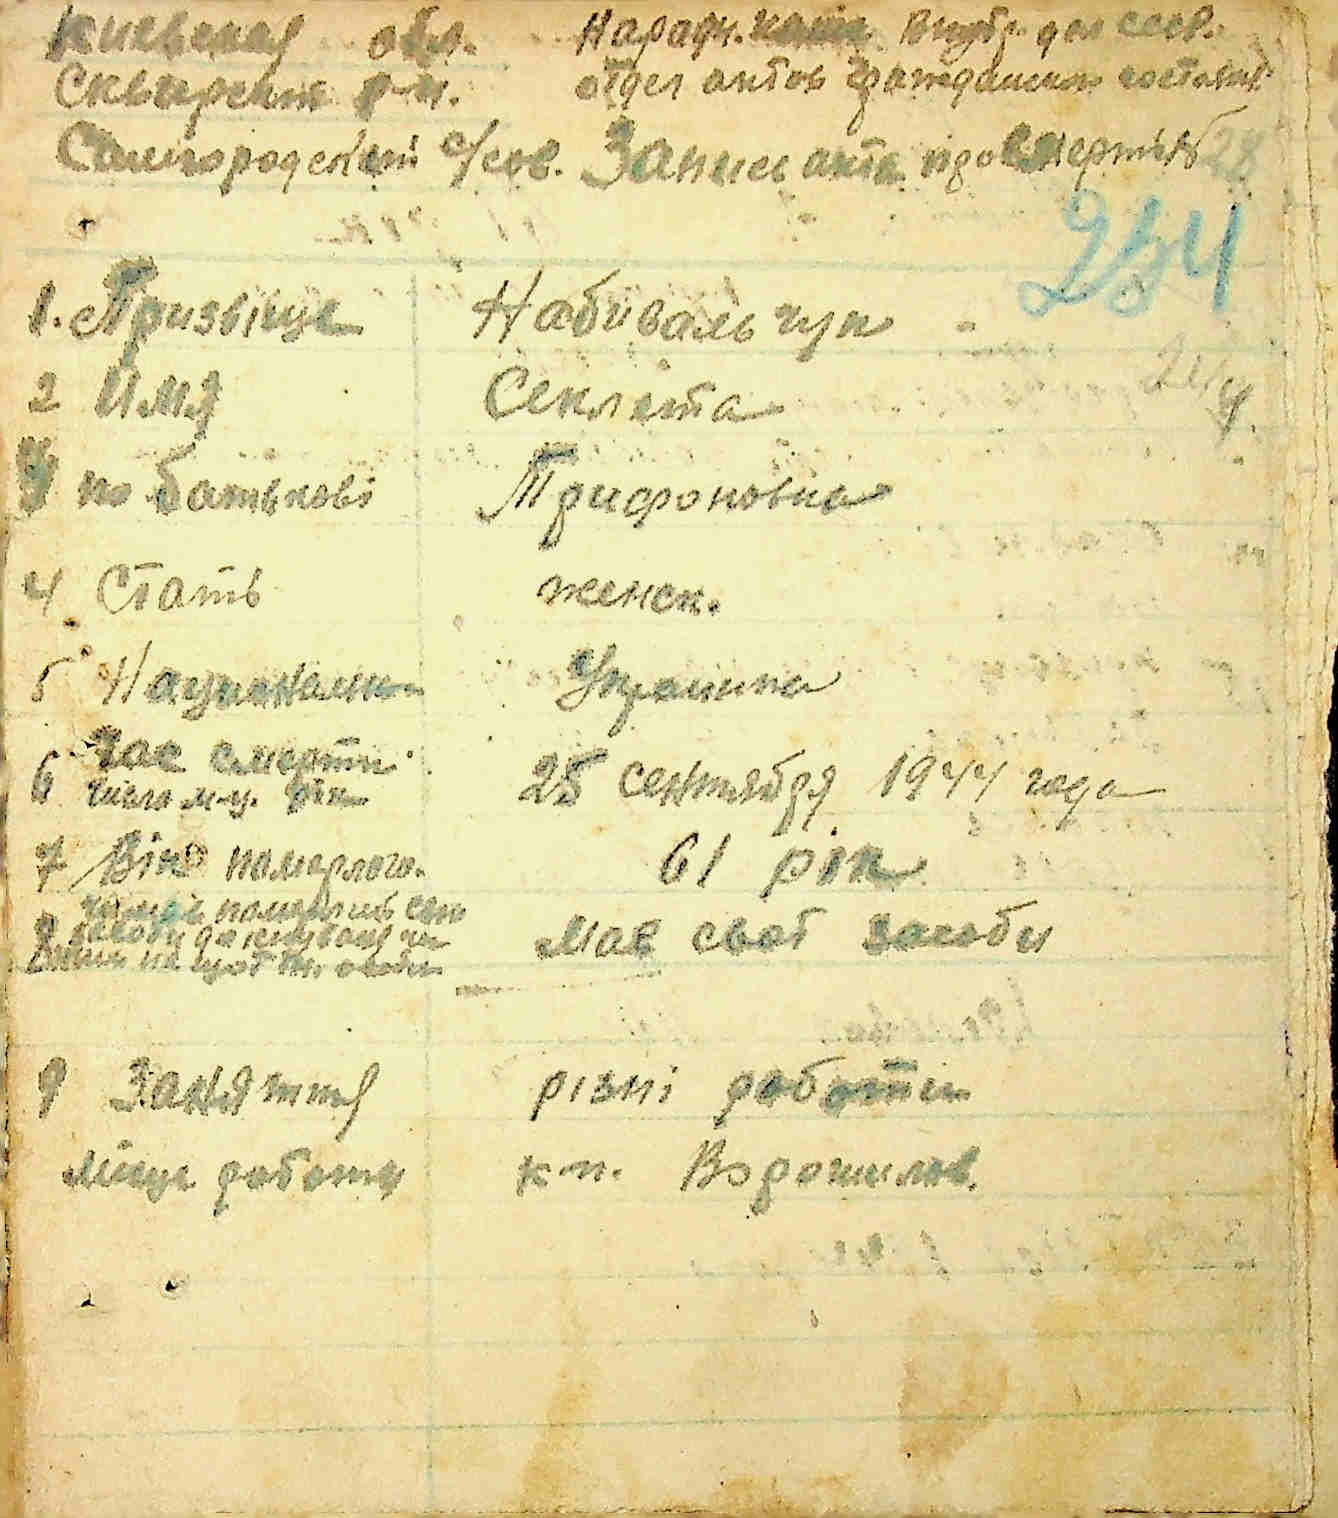 Киевская обл. Народн. ком. Внутр. дел СССР.
Сквирский р-н. отдел актов гражданского состояния
Самгородский с/сов. Запись акта про смерть № 28
234
1. Призвіще Набивальчук
2 Имя Секлета
244
3 по батькові Трифоновна
4 Стать женск.
5 Национальн. Украинка
6 Час смерти
число м-ц. рік 25 сентября 1944 года
7 Вік померлого. 61 рік
8 має свої засоби
9 Заняття різні роботи
Місце роботи к-п. Ворошилов.